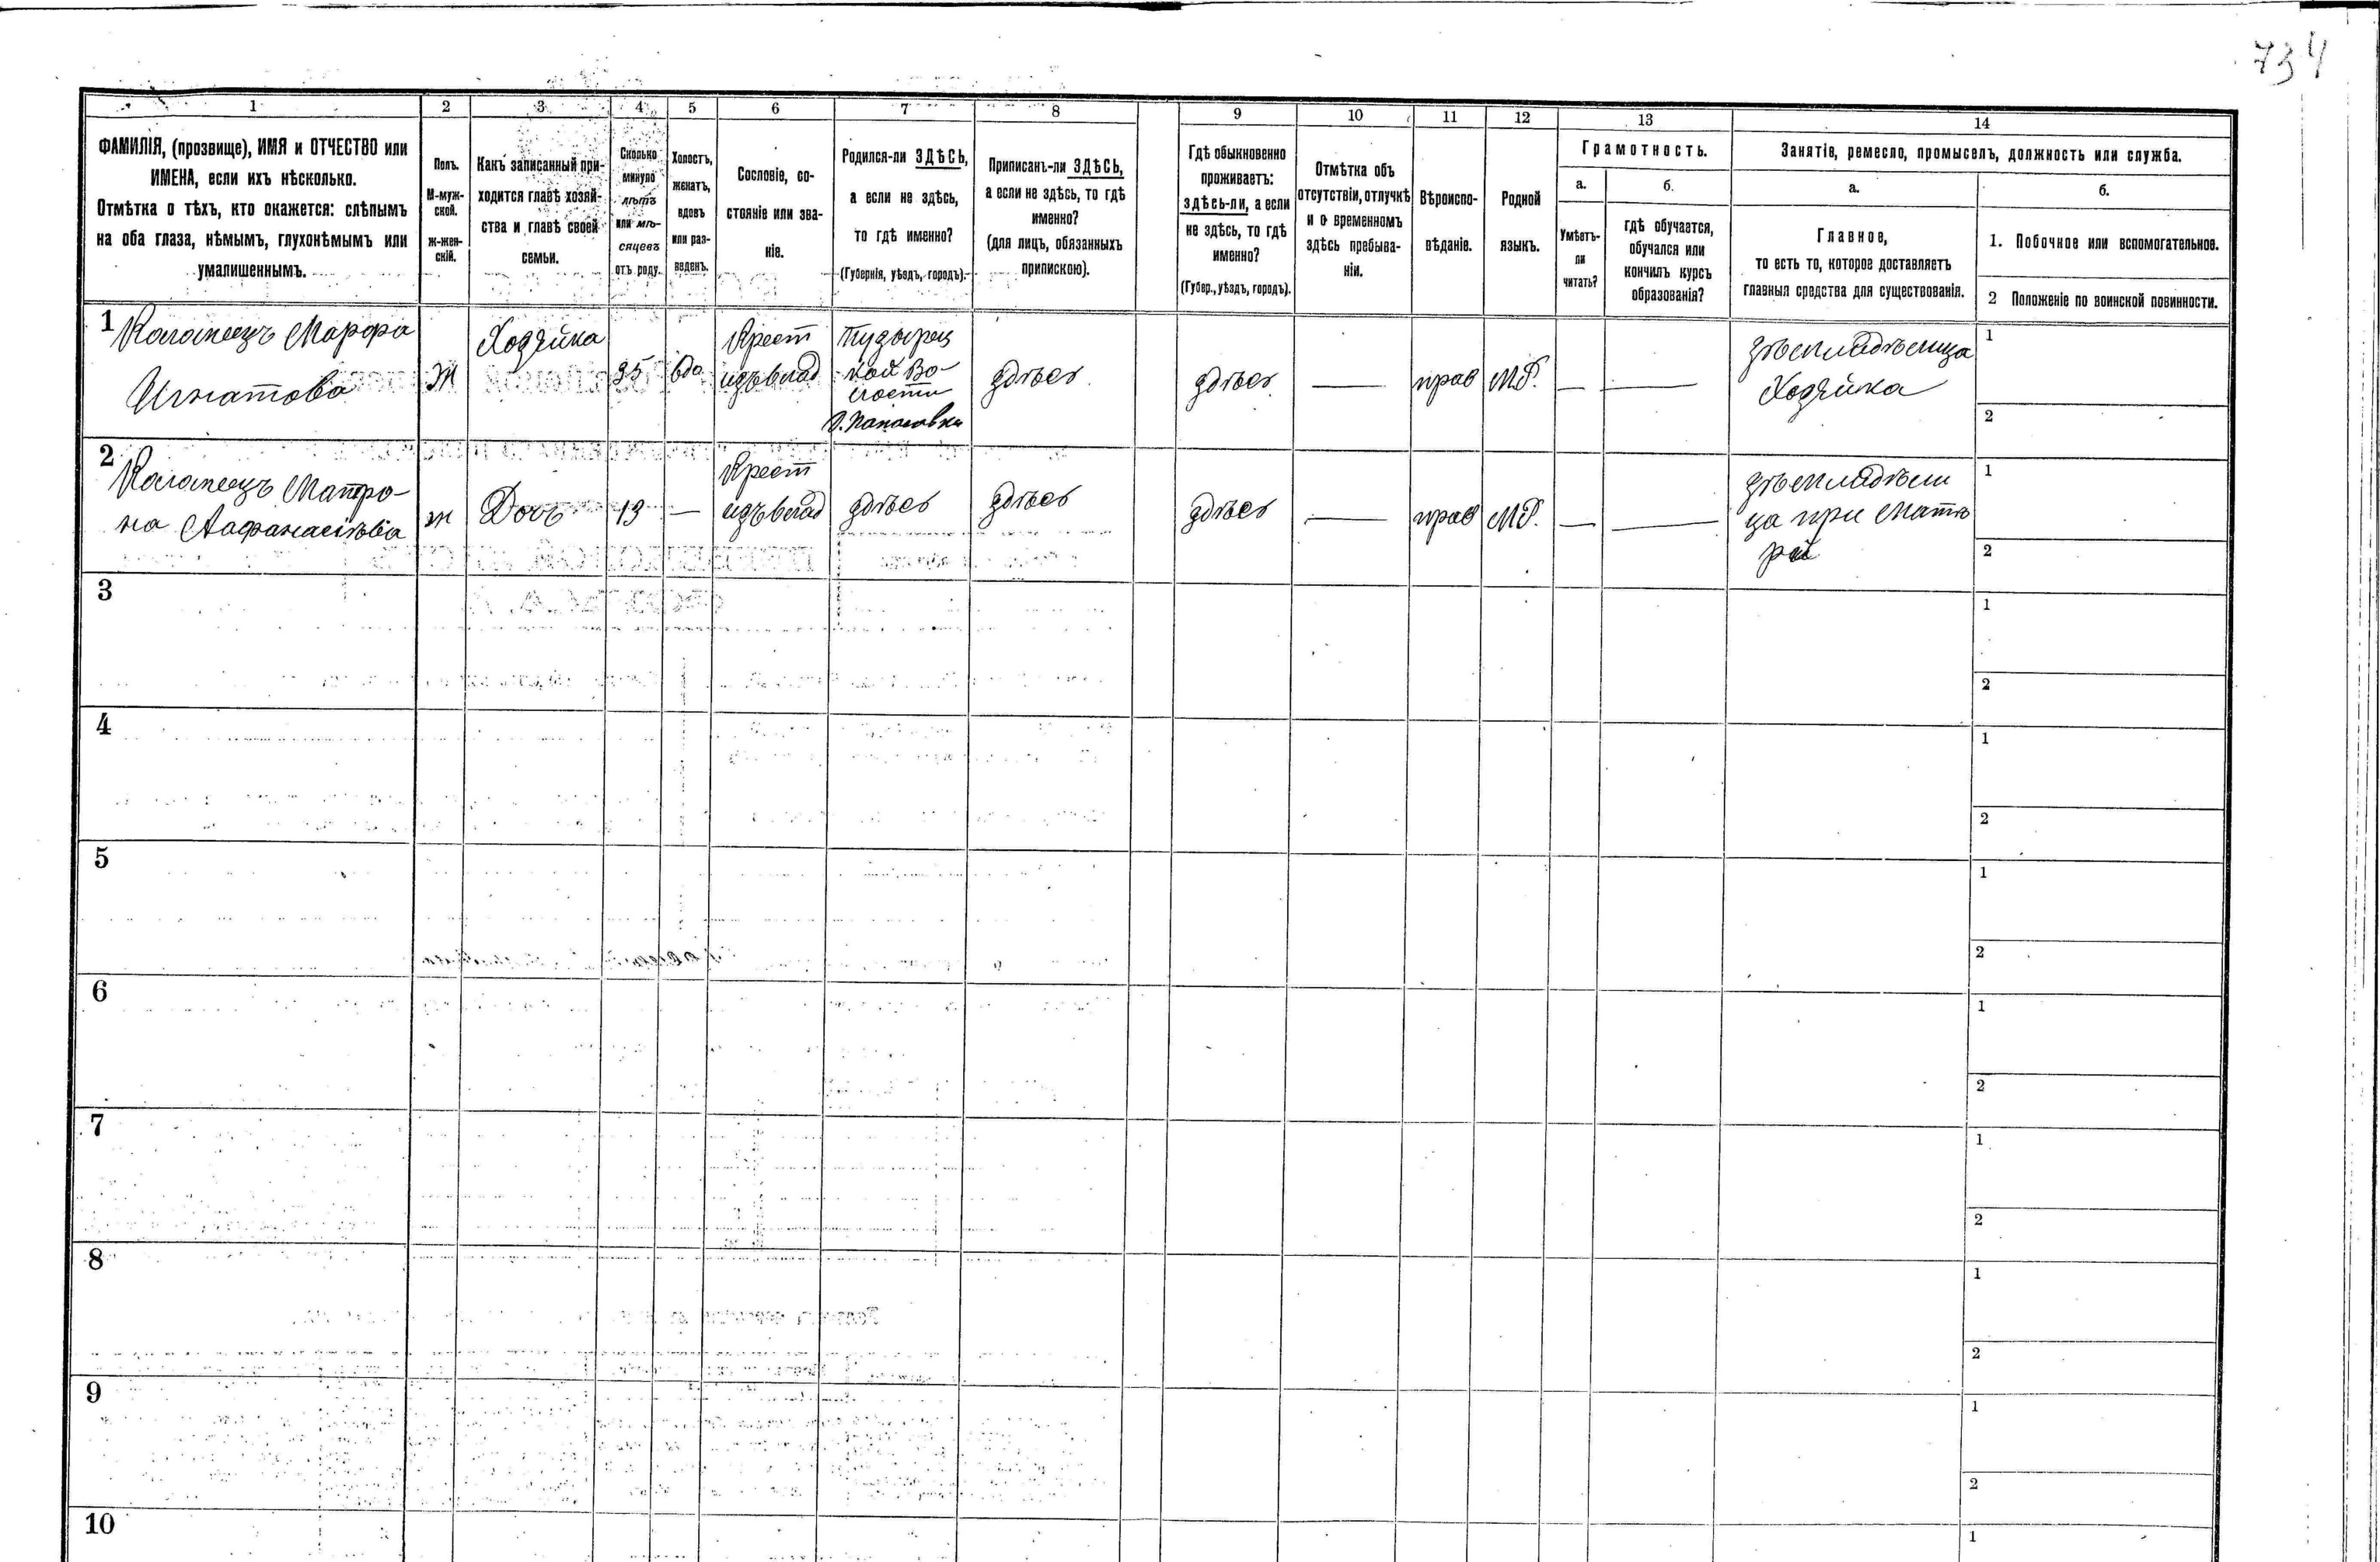 734
1 2 3 4 5 6 7 8 9 10 11 12 13 14
ФАМИЛІЯ, (прозвище), ИМЯ и ОТЧЕСТВО или
ИМЕНА, если ихъ нѣсколько.
Отмѣтка о тѣхъ, кто окажется: слѣпымъ
на оба глаза, нѣмымъ, глухонѣмымъ или
умалишеннымъ.
Полъ.
М-муж-
ской.
Ж-жен-
скій.
Какъ записанный при-
ходится главѣ хозяй-
ства и главѣ своей
семьи.
Сколько
минуло
лѣтъ
или мѣ-
сяцевъ
отъ роду.
Холостъ,
женатъ,
вдовъ
или раз-
веденъ.
Сословіе, со-
стояніе или зва-
ніе.
Родился-ли ЗДѢСЬ,
а если не здѣсь,
то гдѣ именно?
(Губернія, уѣздъ, городъ).
Приписанъ-ли ЗДѢСЬ,
а если не здѣсь, то гдѣ
именно?
(для лицъ, обязанныхъ
припискою).
Гдѣ обыкновенно
проживаетъ:
здѣсь-ли, а если
не здѣсь, то гдѣ
именно?
(Губер., уѣздъ, городъ).
Отмѣтка объ
отсутствіи, отлучкѣ
и о временномъ
здѣсь пребыва-
ніи.
Вѣроиспо-
вѣданіе.
Родной
языкъ.
Грамотность.
а.
Умѣетъ-
ли
читать?
б.
гдѣ обучается,
обучался или
кончилъ курсъ
образованія?
Занятіе, ремесло, промыселъ, должность или служба.
а.
Главное,
то есть то, которое доставляетъ
главныя средства для существованія.
б.
1. Побочное или вспомогательное.
2 Положеніе по воинской повинности.
1
Коломеецъ Марфа
Игнатова
Ж
Хозяйка
35
вдо
Крест
изъ влад
Пузырец
кой Во-
лости
здѣсь
здѣсь
—
прав
М.Р.
—
—
Хозяйка
1
2
2
Коломеецъ Матро-
на Аафанасіева
ж
Дочь
13
—
Крест
изъ влад
здѣсь
здѣсь
здѣсь
—
прав
М.Р.
—
—
ца при Мате
рѣ
1
2
3
1
2
4
1
2
5
1
2
6
1
2
7
1
2
8
1
2
9
1
2
10
1